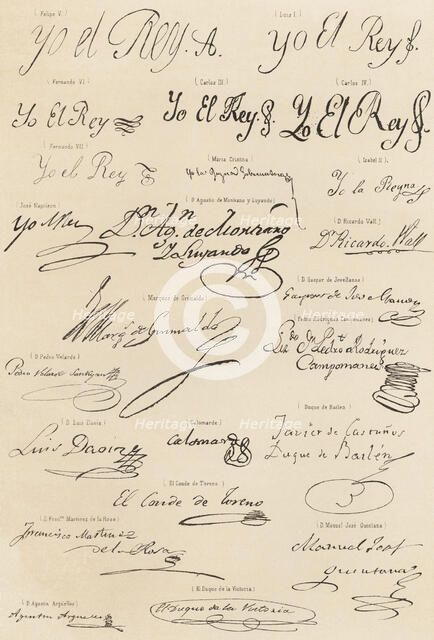 ( Felipe V. )
Yo el Rey.
( Luis I. )
Yo El Rey
( Fernando VI. )
Yo El Rey
( Carlos III. )
Yo El Rey.
( Carlos IV. )
Yo El Rey
( Fernando VII. )
Yo el Rey
( Maria Cristina )
Yo la Reyna Gobernadora
( Isabel II. )
Yo la Reyna
( José Napoleon. )
Yo
( D. Agustin de Montiano y Luyando )
Dn. Agn. de Montiano
y Luyando
( D. Ricardo Wall. )
Dn Ricardo Wall
( Marques de Grimaldo. )
Marqs. de Grimaldo
( D. Gaspar de Jovellanos )
Gaspar de Jove Llanos
( D. Pedro Rodriguez Campomanes )
Pedro Rodriguez
Campomanes
( D. Pedro Velarde )
Pedro Velarde Santiyan
( D. Luis Daoiz )
Luis Daoiz
Calomarde
( Duque de Bailen )
Javier de Castaños
Duque de Bailén
( El Conde de Toreno )
El Conde de Toreno
( D. Franco. Martinez de la Rosa )
Francisco Martinez
de la Rosa
( D. Manuel José Quintana )
Manuel Josef
Quintana
( D. Agustin Argüelles )
Agustin Arguelles
( El Duque de la Victoria )
El Duque de la Victoria
Heritage
Images